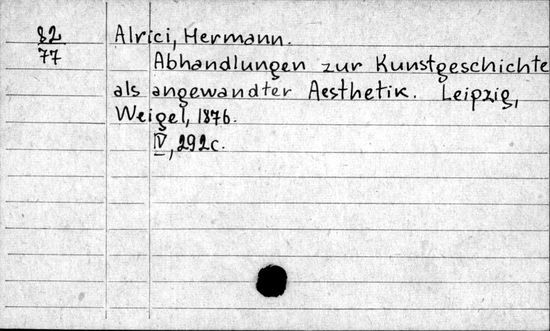 82
77
Alrici, Hermann.
Abhandlungen zur Kunstgeschichte
als angewandter Aesthetik. Leipzig,
Weigel, 1876.
IV, 292c.